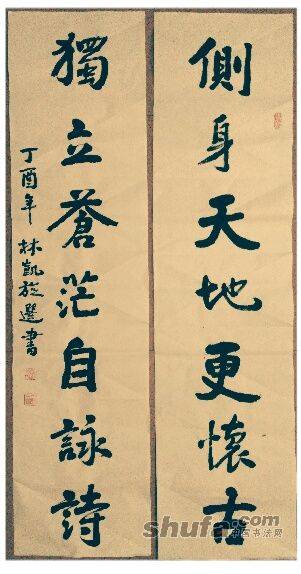 側身天地更懷古
獨立蒼茫自詠詩
丁酉年林凱旋選書
shufa
中国书法网